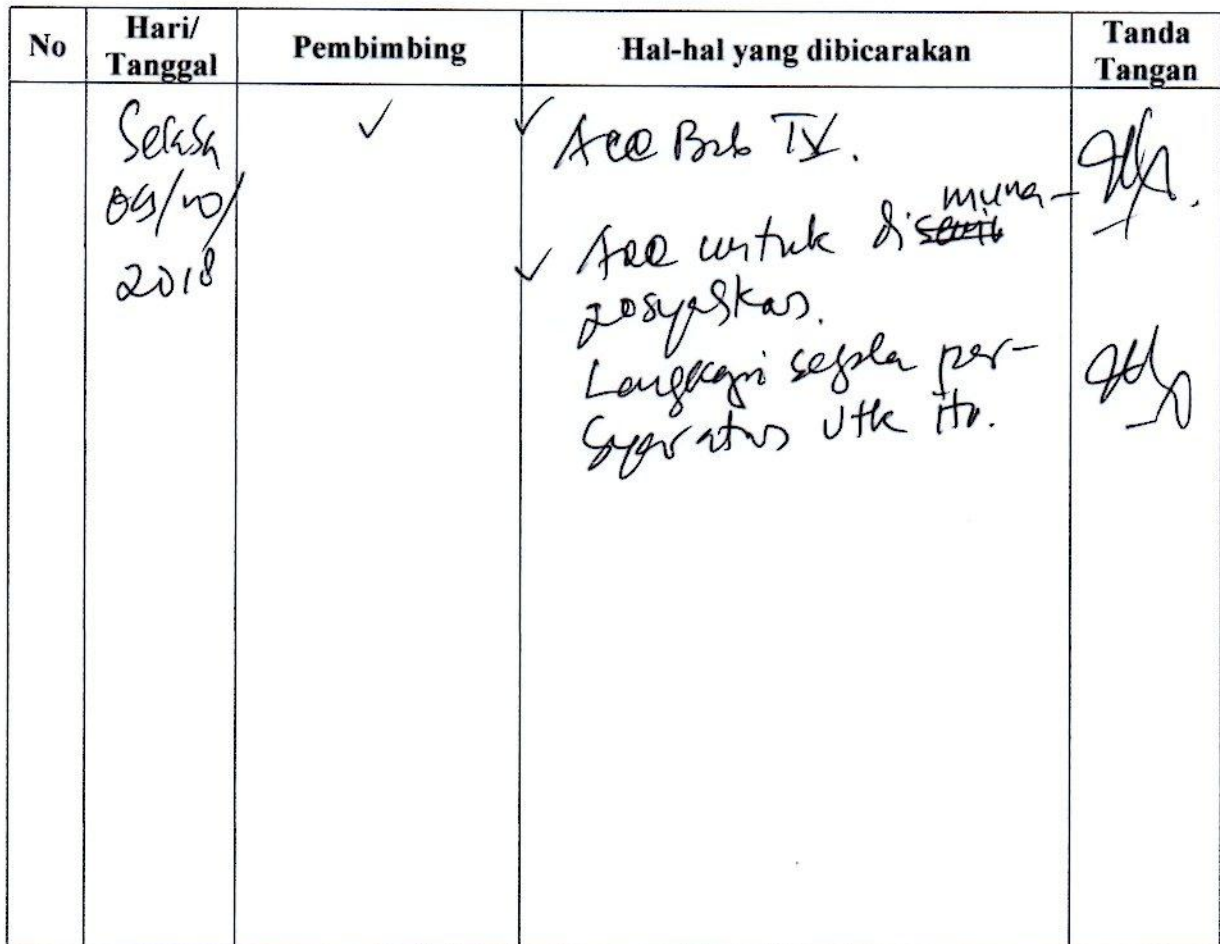 No
Hari/
Tanggal
Pembimbing
Hal-hal yang dibicarakan
Tanda
Tangan
Selasa
09/10/
2018
✓
✓ Acc Bab IV.
✓ Acc untuk dimuna-
qosyahkan.
Lengkapi segala per-
syaratan utk itu.